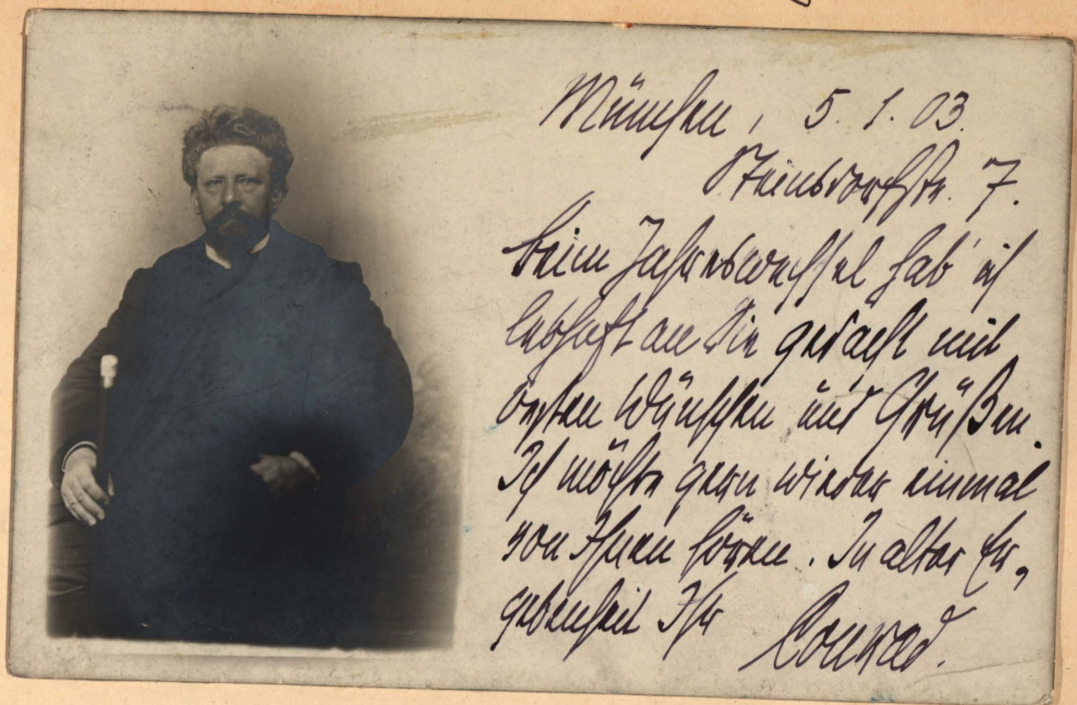 München, 5. 1. 03.
Steinsdorfstr. 7.
Beim Jahreswechsel hab' ich
lebhaft an Sie gedacht mit
besten Wünschen und Grüßen.
Ich möchte gern wieder einmal
von Ihnen hören. In alter Er-
gebenheit Ihr Conrad.